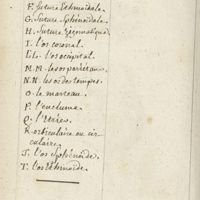 F. Suture Ethmoïdale.
G. Suture Sphénoïdale.
H. Suture Zygomatique.
I. l'os coronal.
L.L. l'os occipital.
M.M. les os parietaux.
N.N. les os des temples.
O. le marteau.
P. l'enclume.
Q. l'Etrier.
R. orbiculaire ou cir-
culaire.
S. l'os Sphénoïde.
T. l'os Ethmoïde.